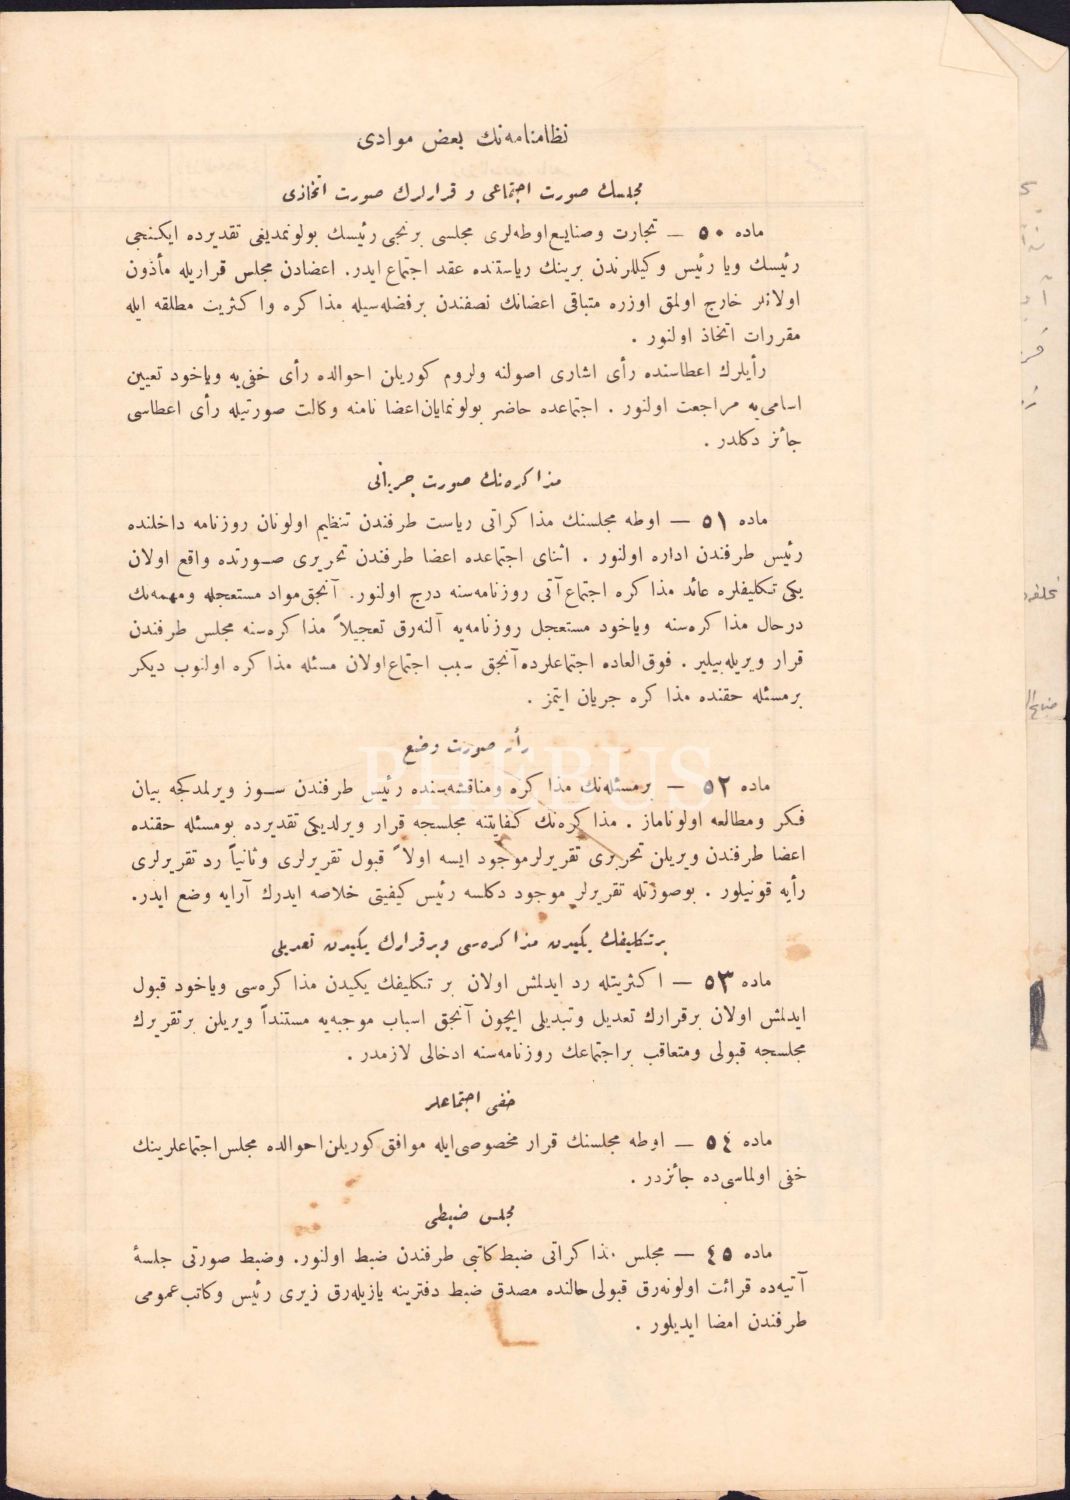 نظامنامه‌نك بعض موادى
مجلسك صورت اجتماعى و قرارلرك صورت اتخاذى
ماده ٥٠ — تجارت وصنايع اوطه‌لرى مجلسى برنجى رئيسك بولونمديغى تقديرده ايكنجى
رئيسك ويا رئيس وكيللرندن برينك رياستنده عقد اجتماع ايدر. اعضادن مجلس قراريله مأذون
اولانلر خارج اولمق اوزره متباقى اعضانك نصفندن برفضله‌سيله مذاكره واكثريت مطلقه ايله
مقررات اتخاذ اولنور .
رأيلرك اعطاسنده رأى اشارى اصولنه ولزوم كوريلن احوالده رأى خفى‌يه وياخود تعيين
اسامى‌يه مراجعت اولنور . اجتماعده حاضر بولونمايان اعضا نامنه وكالت صورتيله رأى اعطاسى
جائز دكلدر .
مذاكره‌نك صورت جريانى
ماده ٥١ — اوطه مجلسنك مذاكراتى رياست طرفندن تنظيم اولونان روزنامه داخلنده
رئيس طرفندن اداره اولنور . اثناى اجتماعده اعضا طرفندن تحريرى صورتده واقع اولان
يكى تكليفلره عائد مذاكره اجتماع آتى روزنامه‌سنه درج اولنور. آنجق مواد مستعجله ومهمه‌نك
درحال مذاكره‌سنه وياخود مستعجل روزنامه‌يه آلنه‌رق تعجيلاً مذاكره‌سنه مجلس طرفندن
قرار ويريله‌بيلير . فوق‌العاده اجتماعلرده آنجق سبب اجتماع اولان مسئله مذاكره اولنوب ديكر
برمسئله حقنده مذاكره جريان ايتمز .
صورت وضع
ماده ٥٢ — برمسئله‌نك مذاكره ومناقشه‌سنده رئيس طرفندن سوز ويرلمدكجه بيان
فكر ومطالعه اولوناماز . مذاكره‌نك كفايتنه مجلسجه قرار ويرلديكى تقديرده بومسئله حقنده
اعضا طرفندن ويريلن تحريرى تقريرلر موجود ايسه اولاً قبول تقريرلرى وثانياً رد تقريرلرى
رأيه قونيلور . بوصورتله تقريرلر موجود دكلسه رئيس كيفيتى خلاصه ايدرك آرايه وضع ايدر.
برتكليفك يكيدن مذاكره‌سى وبرقرارك يكيدن تعديلى
ماده ٥٣ — اكثريتله رد ايدلمش اولان بر تكليفك يكيدن مذاكره‌سى وياخود قبول
ايدلمش اولان برقرارك تعديل وتبديلى ايچون آنجق اسباب موجبه‌يه مستنداً ويريلن برتقريرك
مجلسجه قبولى ومتعاقب براجتماعك روزنامه‌سنه ادخالى لازمدر .
خفى اجتماعلر
ماده ٥٤ — اوطه مجلسنك قرار مخصوصى‌ايله موافق كوريلن احوالده مجلس اجتماعلرينك
خفى اولماسى‌ده جائزدر .
مجلس ضبطى
ماده ٤٥ — مجلس مذاكراتى ضبط كاتبى طرفندن ضبط اولنور. وضبط صورتى جلسهٔ
آتيه‌ده قرائت اولونه‌رق قبولى حالنده مصدق ضبط دفترينه يازيله‌رق زيرى رئيس وكاتب عمومى
طرفندن امضا ايديلور .
PHEBUS